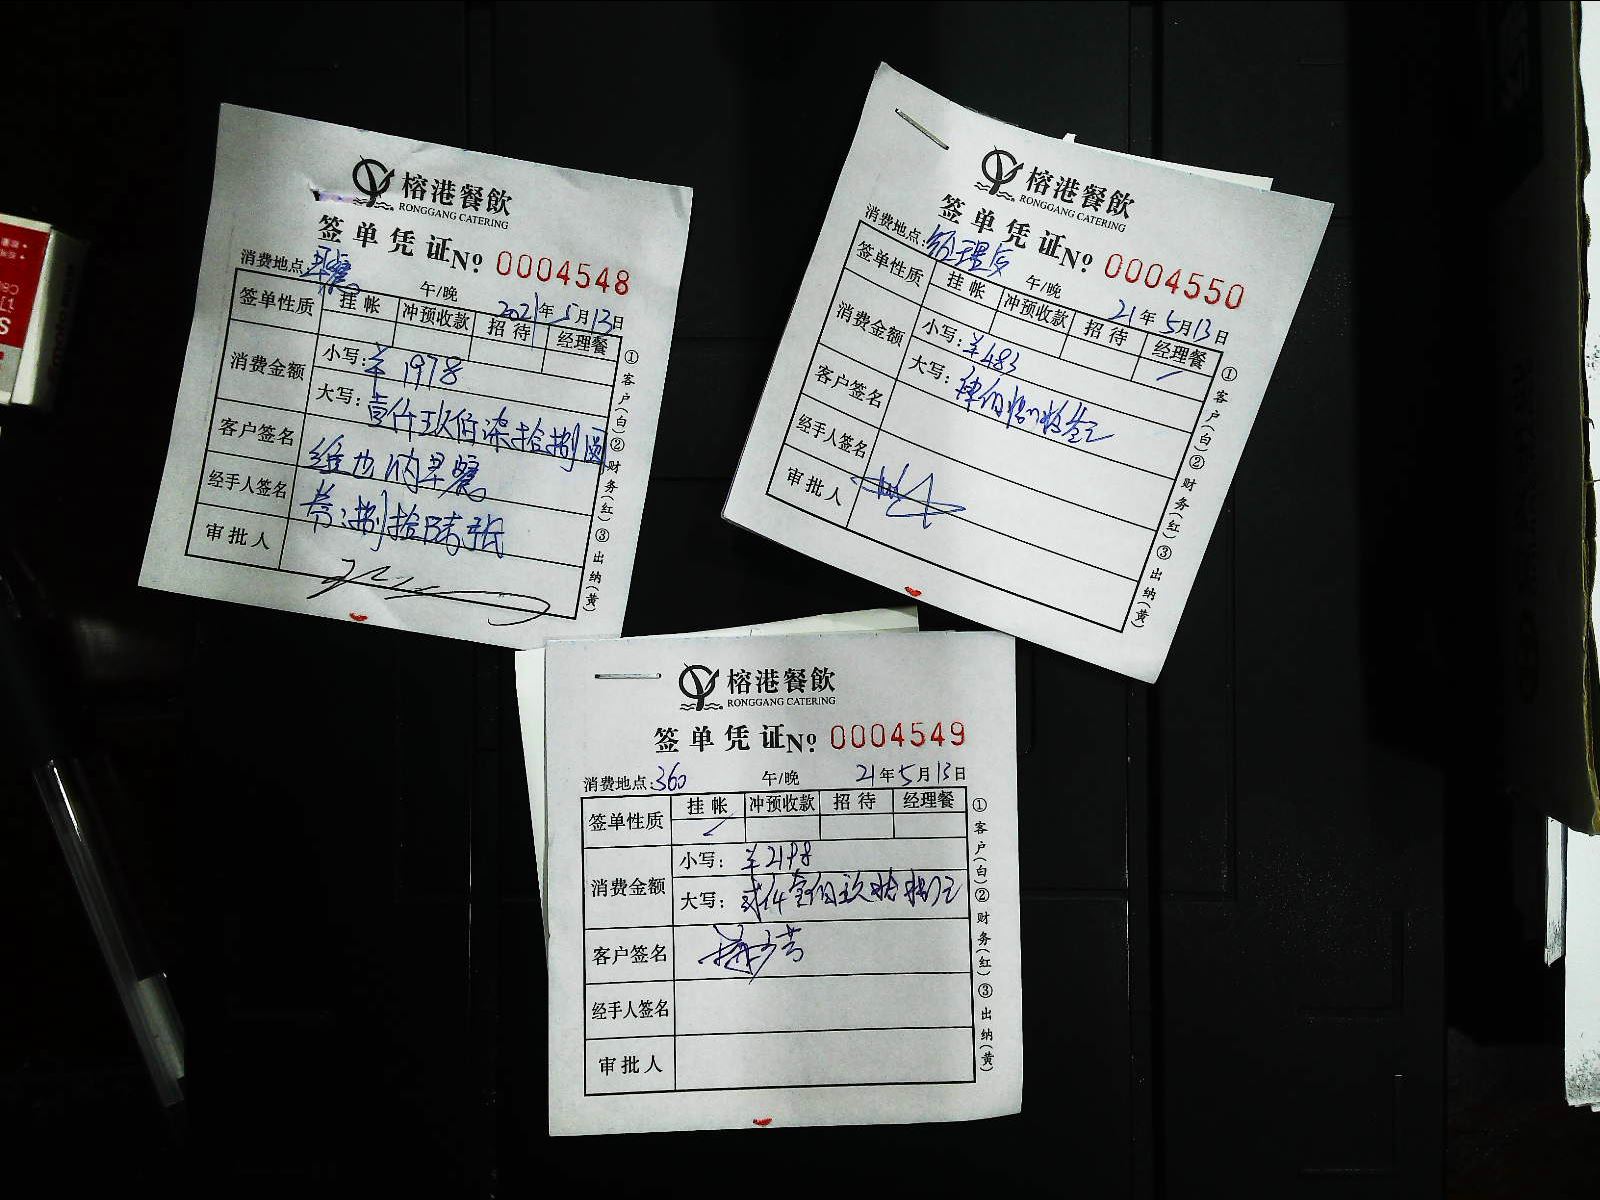 榕港餐飲
RONGGANG CATERING
签单凭证 № 0004548
消费地点:早餐 午/晚 2021年5月13日
签单性质 挂帐 冲预收款 招待 经理餐
消费金额 小写:¥1978
大写:壹仟玖佰柒拾捌圆
客户签名 维也纳早餐
经手人签名 券:捌拾陆张
审批人
①客户(白)②财务(红)③出纳(黄)
榕港餐飲
RONGGANG CATERING
签单凭证 № 0004550
消费地点:经理房 午/晚 21年5月13日
签单性质 挂帐 冲预收款 招待 经理餐
消费金额 小写:¥483
大写:肆佰捌拾叁元
客户签名
经手人签名
审批人
①客户(白)②财务(红)③出纳(黄)
榕港餐飲
RONGGANG CATERING
签单凭证 № 0004549
消费地点:360 午/晚 21年5月13日
签单性质 挂帐 冲预收款 招待 经理餐
消费金额 小写:¥2198
大写:贰仟壹佰玖拾捌元
客户签名
经手人签名
审批人
①客户(白)②财务(红)③出纳(黄)